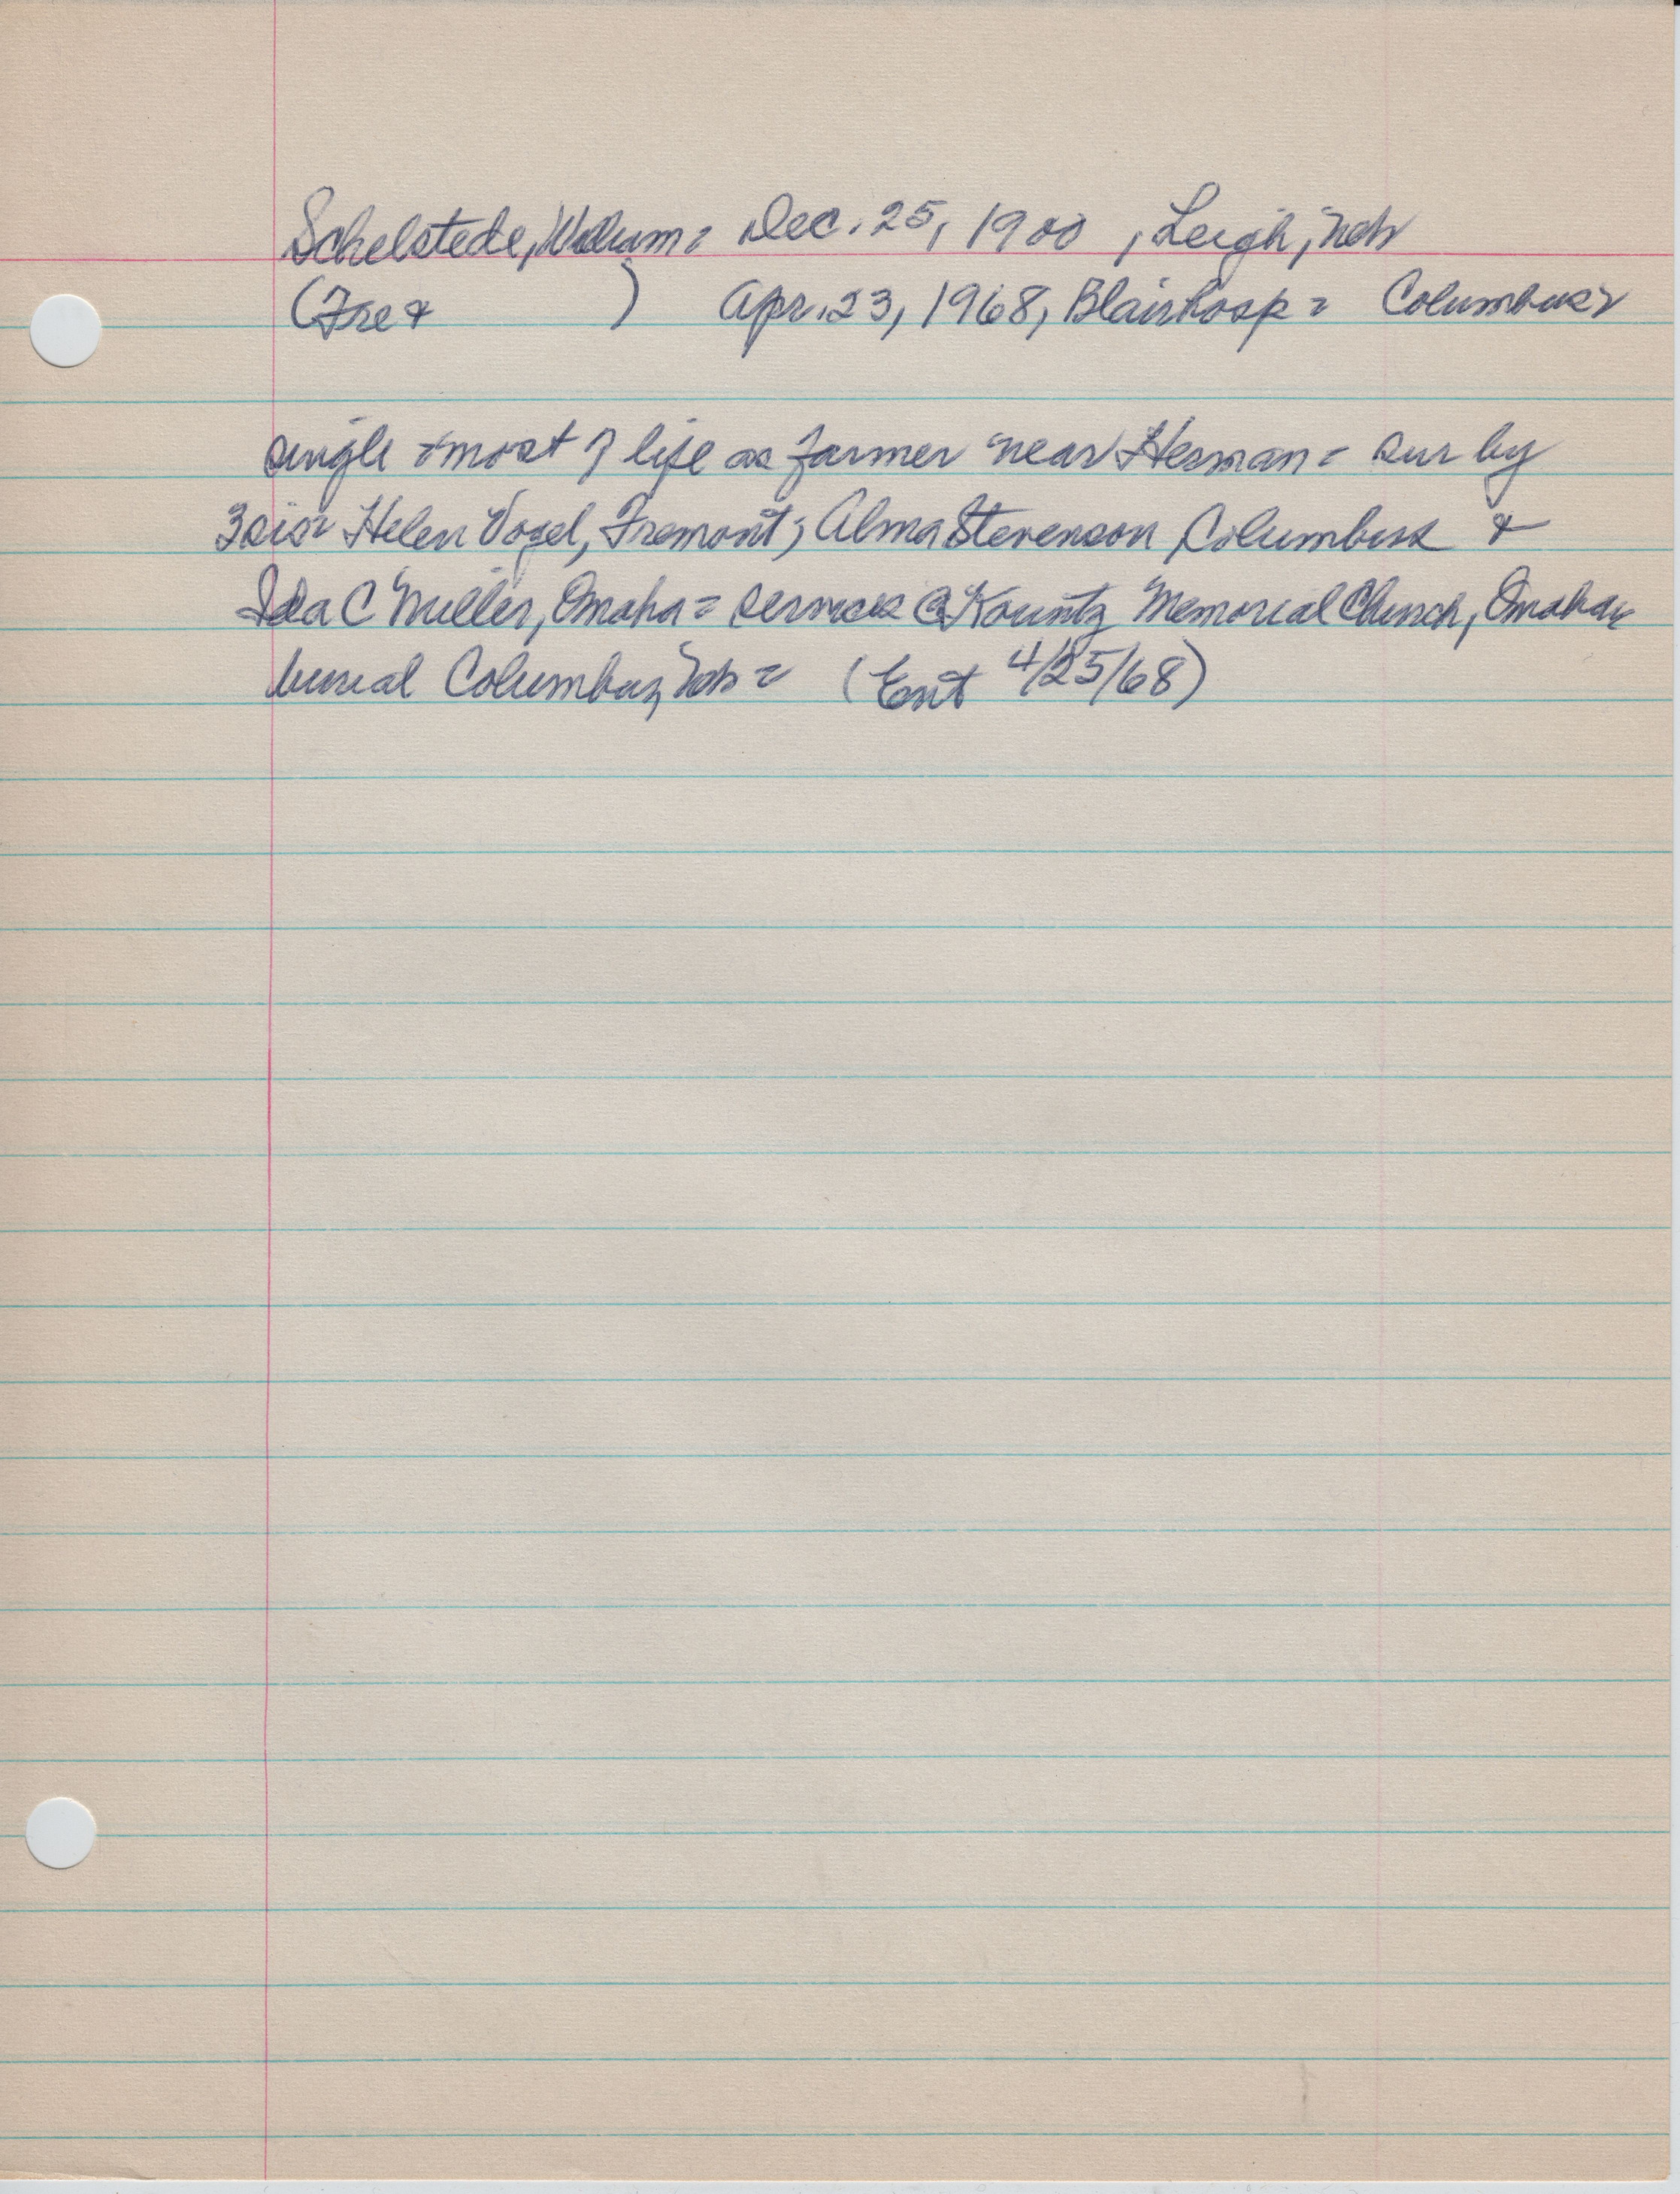 Schelstede, William = Dec. 25, 1900 , Leigh, Neb
(Fre & ) Apr. 23, 1968, Blair hosp = Columbus =
single & most of life as farmer near Herman = sur by
3 sis = Helen Vogel, Fremont; Alma Stevenson Columbus &
Ida C Miller, Omaha = services @ Kountz Memorial Church, Omaha =
burial Columbus, Neb = (Ent 4/25/68)